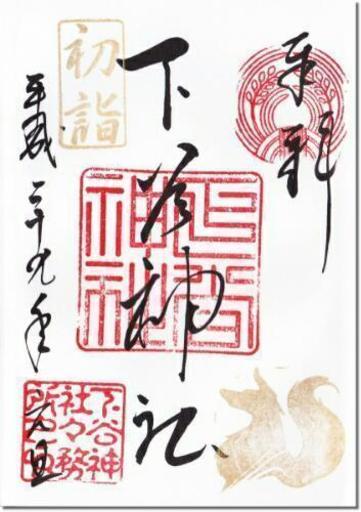 奉拝
下谷神社
下谷
神社
初詣
平成二十九年
元旦
下谷神
社々務
所